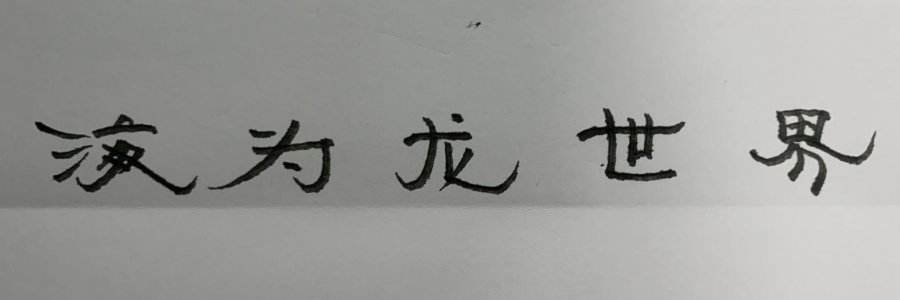 海为龙世界